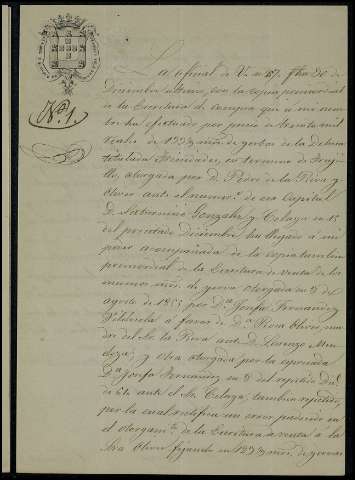 Nº 1.
La oficial de V. nº 57. fha 30 de
Diciembre ultimo, con la copia primordial
de la Escritura de compra que á mi nom-
bre ha efectuado por precio de treinta mil
reales de 1233 mrs. de yerbas de la Dehesa
titulada Trinidades, en termino de Truji-
llo, otorgada por D. Pedro de la Riva y
Oliver ante el numer.º de esa Capital
D. Saturnino Gonzalez y Celaya en 15
del precitado diciembre ha llegado á mi
poder acompañada de la copia tambien
primordial de la Escritura de venta de los
mismos mrs. de yerva otorgada en 3 de
agosto de 1855 por D.ª Josefa Fernandez
á favor de D.ª Rosa Oliver, ma-
dre del Sr. la Riva ante D. Lorenzo Men-
doza; y otra otorgada por la espresada
D.ª Josefa Fernandez en 3 del repetido Di.e
de 61 ante el Sr. Celaya, tambien repetido,
por la cual ratifica un error padecido en
el otorgam.to de la Escritura de venta á la
Sra Oliver fijando en 1233 mrs. de yervas